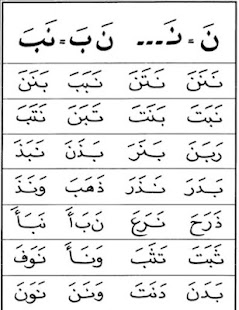 نَ = نَـ... نَ بَ = نَبَ
نَنَنَ نَتَنَ نَبَبَ بَنَنَ
نَبَتَ بَنَتَ تَبَنَ نَتَبَ
رَبَنَ بَنَرَ بَذَنَ نَبَذَ
بَدَرَ نَذَرَ ذَهَبَ وَنَذَ
ذَرَحَ نَرَعَ نَ بَ أَ نَبَأَ
ثَبَتَ تَثَبَ وَنَأَ نَوَفَ
بَدَنَ دَنَتَ وَنَنَ نَوَنَ